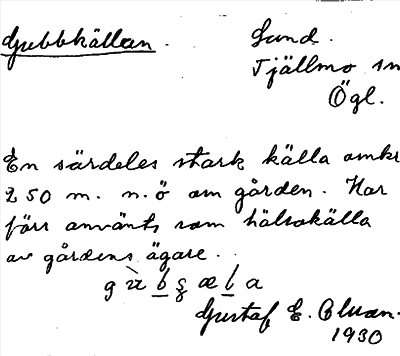 Gubbkällan. Lund.
Tjällmo sn
Ögl.
En särdeles stark källa omkr
250 m. n.ö om gården. Har
förr använts som hälsokälla
av gårdens ägare.
Gustaf E.
1930